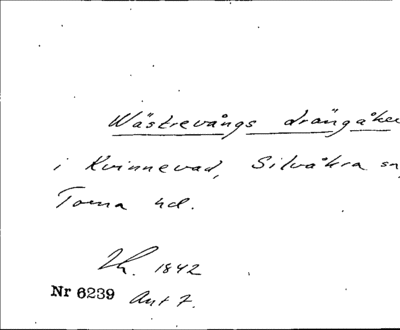 Wästrevångs drängåker
i Kvinnevad, Silvåkra sn,
Torna hd.
1842
Nr 6239 Akt 7.